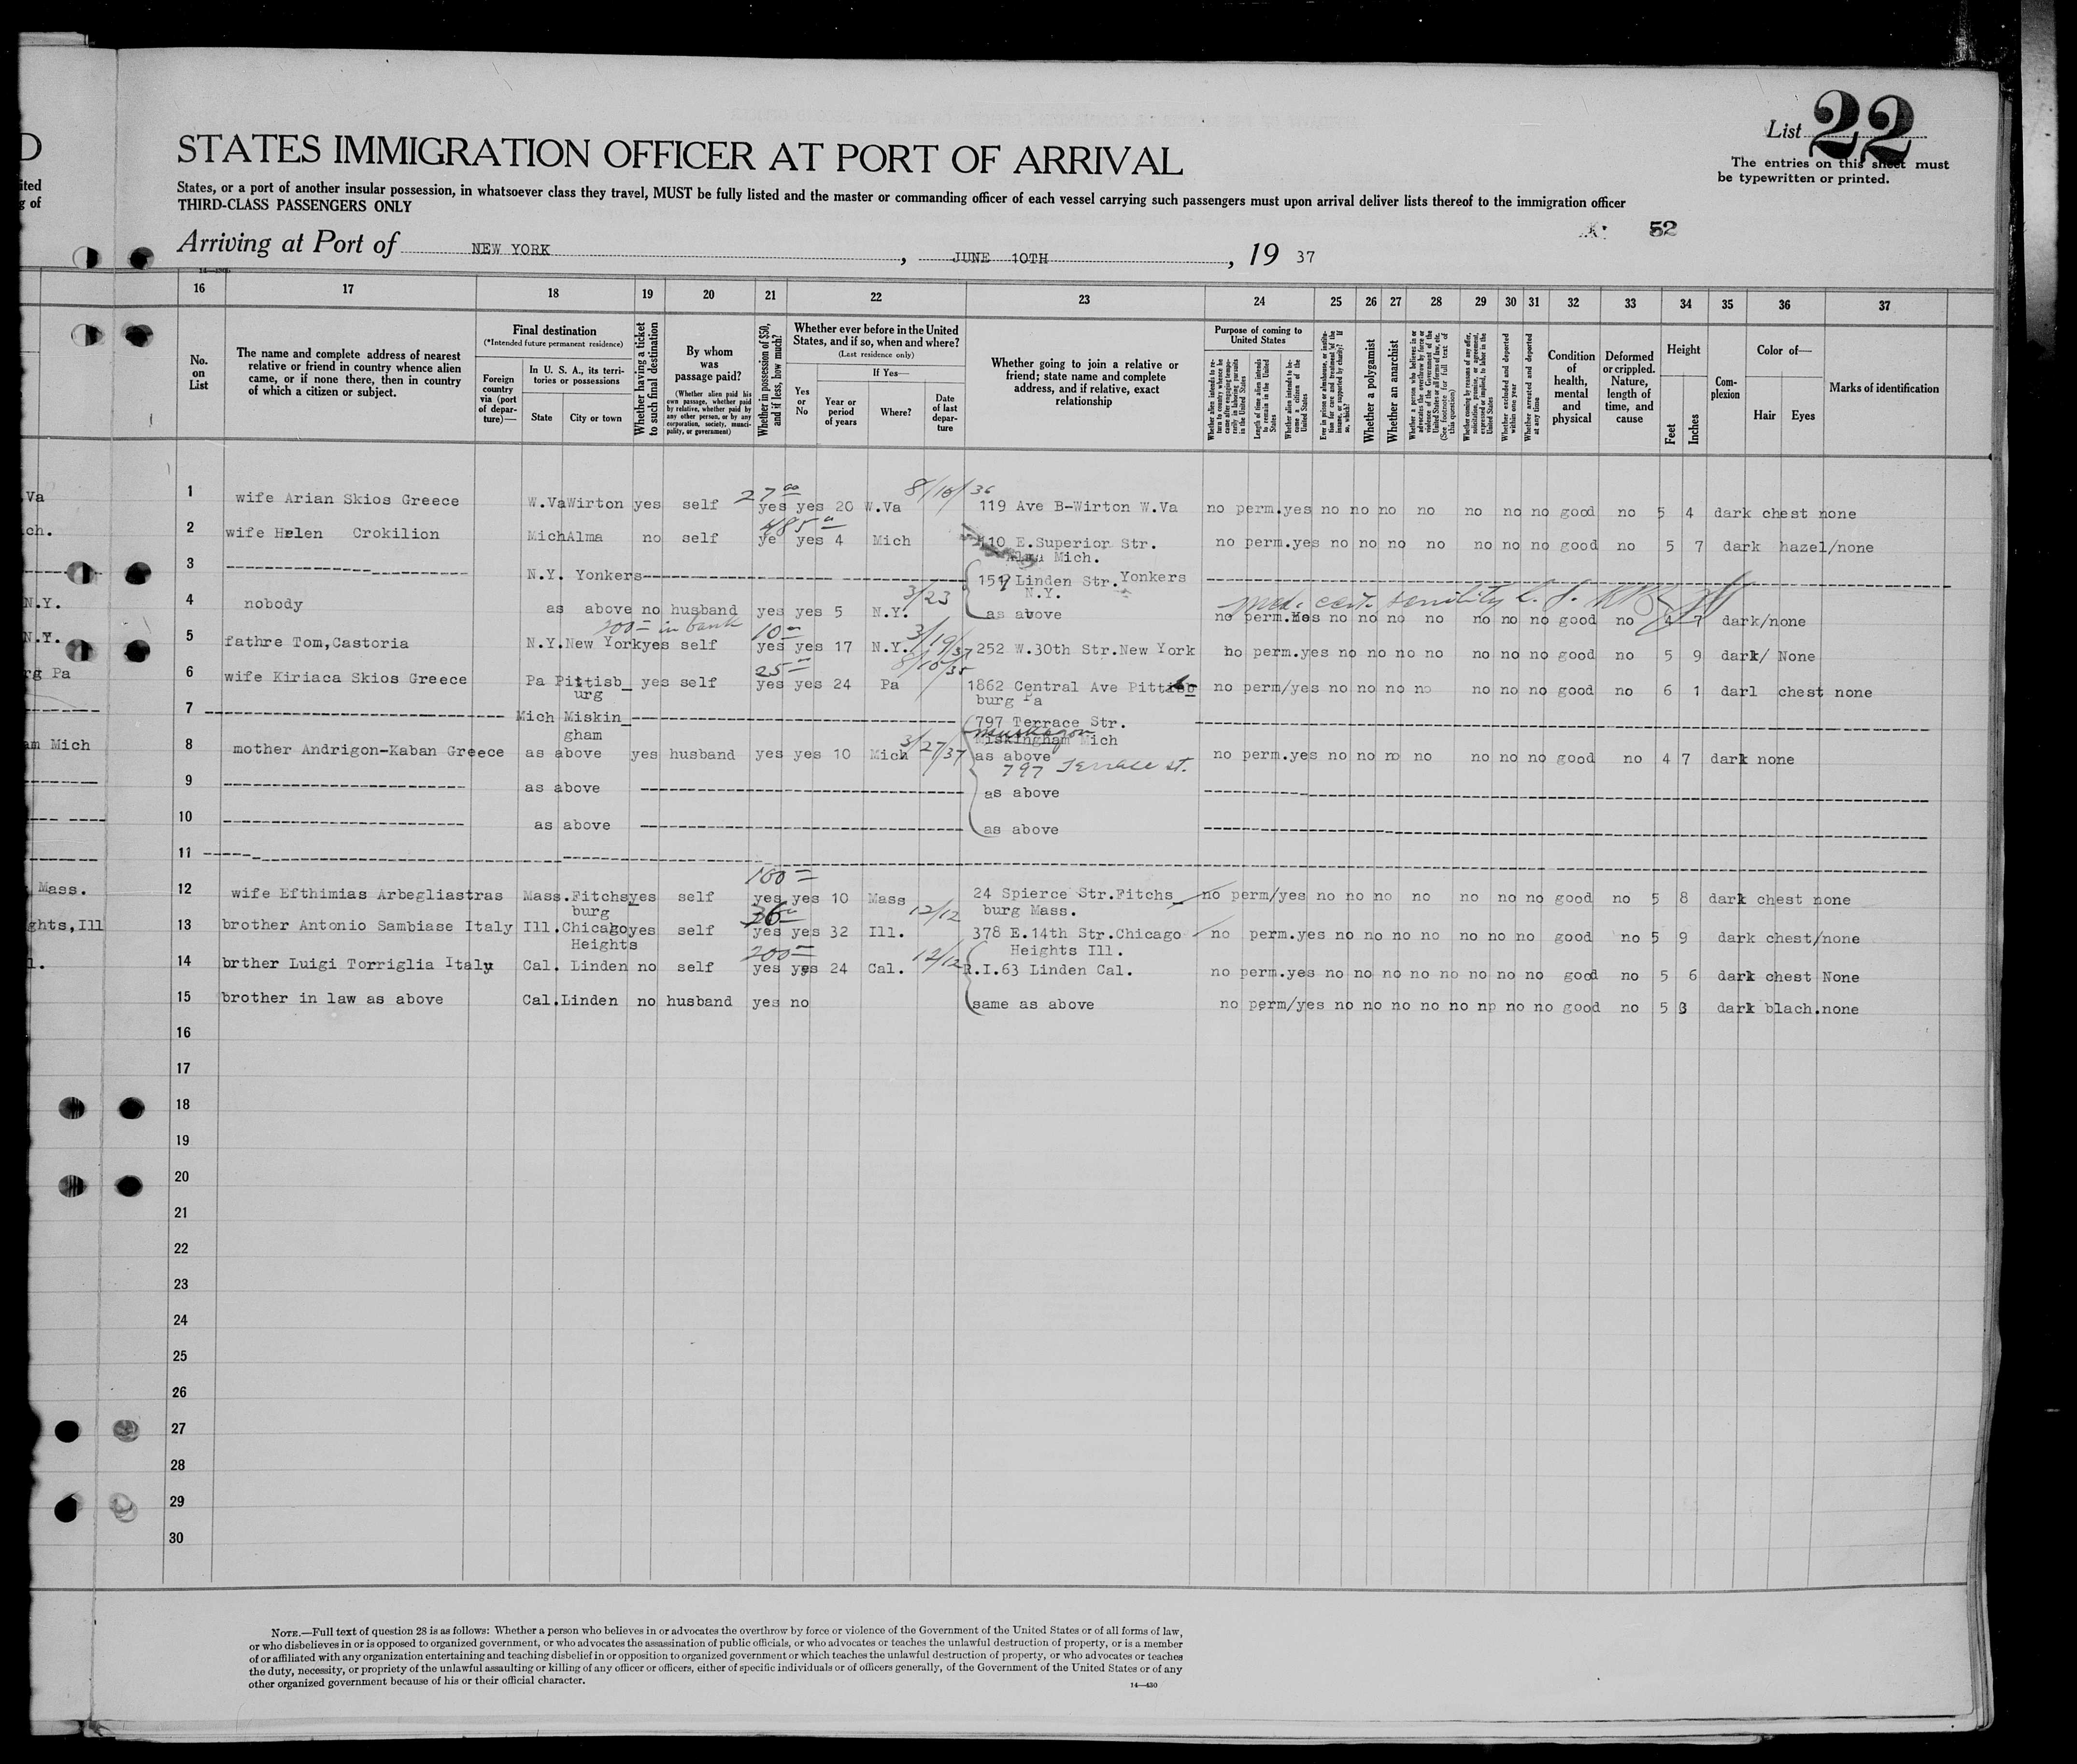 D
List 22
STATES IMMIGRATION OFFICER AT PORT OF ARRIVAL
The entries on this sheet must
be typewritten or printed.
ited
g of
States, or a port of another insular possession, in whatsoever class they travel, MUST be fully listed and the master or commanding officer of each vessel carrying such passengers must upon arrival deliver lists thereof to the immigration officer
THIRD-CLASS PASSENGERS ONLY
52
Arriving at Port of NEW YORK, JUNE 10TH, 19 37
16 17 18 19 20 21 22 23 24 25 26 27 28 29 30 31 32 33 34 35 36 37
No. on List
The name and complete address of nearest relative or friend in country whence alien came, or if none there, then in country of which a citizen or subject.
Final destination
(*Intended future permanent residence)
Foreign country via (port of departure)—
In U. S. A., its territories or possessions
State
City or town
Whether having a ticket to such final destination
By whom was passage paid?
(Whether alien paid his own passage, whether paid by relative, whether paid by any other person, or by any corporation, society, municipality, or government)
Whether in possession of $50, and if less, how much?
Whether ever before in the United States, and if so, when and where?
(Last residence only)
Yes or No
If Yes—
Year or period of years
Where?
Date of last departure
Whether going to join a relative or friend; state name and complete address, and if relative, exact relationship
Purpose of coming to United States
Whether alien intends to return to country whence he came after engaging temporarily in laboring pursuits in the United States
Length of time alien intends to remain in the United States
Whether alien intends to become a citizen of the United States
Ever in prison or almshouse, or institution for care and treatment of the insane, or supported by charity? If so, which?
Whether a polygamist
Whether an anarchist
Whether a person who believes in or advocates the overthrow by force or violence of the Government of the United States or all forms of law, etc. (See footnote for full text of this question)
Whether coming by reasons of any offer, solicitation, promise, or agreement, expressed or implied, to labor in the United States
Whether excluded and deported within one year
Whether arrested and deported at any time
Condition of health, mental and physical
Deformed or crippled. Nature, length of time, and cause
Height
Feet
Inches
Complexion
Color of—
Hair Eyes
Marks of identification
Va 1 wife Arian Skios Greece W.Va Wirton yes self 27 00 yes yes 20 W.Va 8/10/36 119 Ave B-Wirton W.Va no perm.yes no no no no no no no good no 5 4 dark chest none
ch. 2 wife Helen Crokilion Mich Alma no self 485 ye yes 4 Mich 110 E.Superior Str. no perm.yes no no no no no no no good no 5 7 dark hazel/none
Mich.
3 N.Y. Yonkers 151 Linden Str. Yonkers
N.Y.
N.Y. 4 nobody as above no husband yes yes 5 N.Y. 3/23 as above med. cert. senility no perm. no no no no no no good no 4 7 dark/none
200 - in bank
N.Y. 5 fathre Tom,Castoria N.Y. New York yes self 10 - yes yes 17 N.Y. 3/19/37 252 W.30th Str.New York no perm.yes no no no no no no no good no 5 9 dark/ None
rg Pa 6 wife Kiriaca Skios Greece Pa Pittisb_ yes self 25 - yes yes 24 Pa 8/10/35 1862 Central Ave no perm/yes no no no no no no no good no 6 1 darl chest none
urg burg Pa
7 Mich Miskin_ 797 Terrace Str.
gham Muskegon
Miskingham Mich
am Mich 8 mother Andrigon-Kaban Greece as above yes husband yes yes 10 Mich 3/27/37 as above no perm.yes no no no no no no no good no 4 7 dark none
797 Terrace St.
9 as above as above
10 as above as above
11
Mass. 12 wife Efthimias Arbegliastras Mass. Fitchs yes self 100 - yes yes 10 Mass 24 Spierce Str.Fitchs_ no perm/yes no no no no no no no good no 5 8 dark chest none
burg burg Mass.
ghts,Ill 13 brother Antonio Sambiase Italy Ill. Chicago yes self yes yes 32 Ill. 12/12 378 E.14th Str.Chicago no perm.yes no no no no no no no good no 5 9 dark chest/none
Heights Heights Ill.
l. 14 brther Luigi Torriglia Italy Cal. Linden no self 200 - yes yes 24 Cal. 12/12 R.I.63 Linden Cal. no perm.yes no no no no no no no good no 5 6 dark chest None
15 brother in law as above Cal. Linden no husband yes no same as above no perm/yes no no no no no np no no good no 5 3 dark blach.none
16
17
18
19
20
21
22
23
24
25
26
27
28
29
30
NOTE.—Full text of question 28 is as follows: Whether a person who believes in or advocates the overthrow by force or violence of the Government of the United States or of all forms of law,
or who disbelieves in or is opposed to organized government, or who advocates the assassination of public officials, or who advocates or teaches the unlawful destruction of property, or is a member
of or affiliated with any organization entertaining and teaching disbelief in or opposition to organized government or which teaches the unlawful destruction of property, or who advocates or teaches
the duty, necessity, or propriety of the unlawful assaulting or killing of any officer or officers, either of specific individuals or of officers generally, of the Government of the United States or of any
other organized government because of his or their official character.
14—430